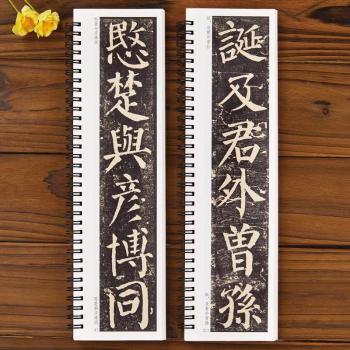 愍楚與彦博同
誕及君外曾孫